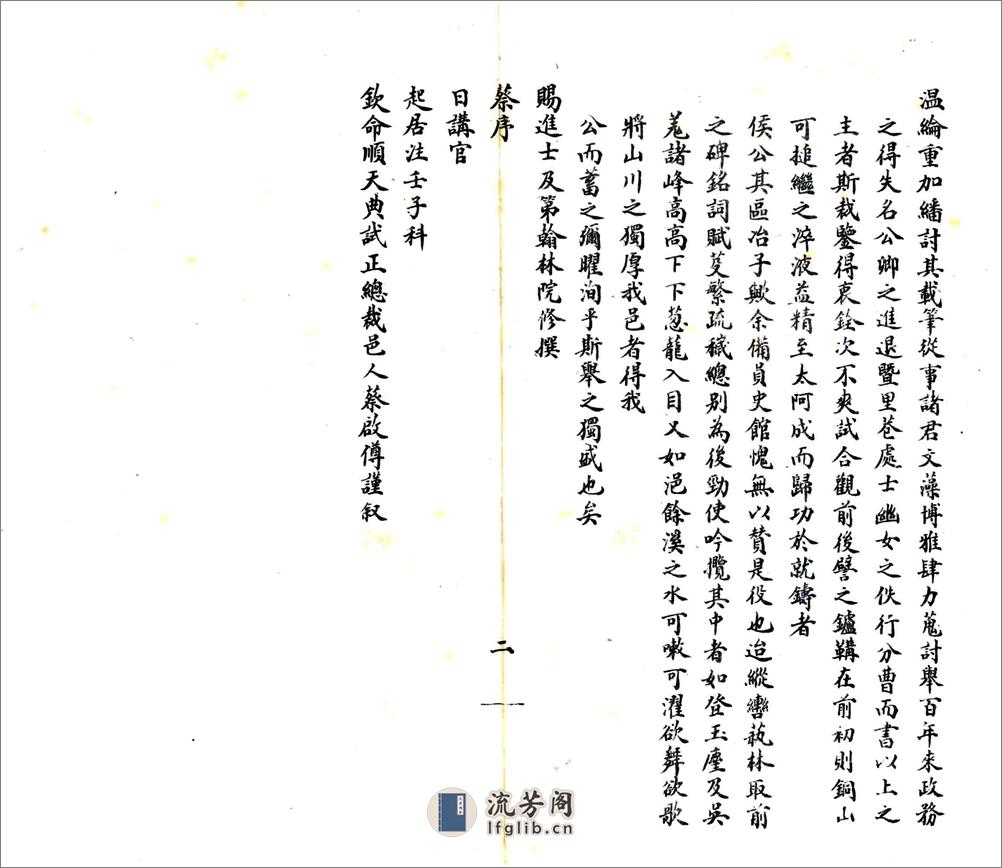 温綸重加繙討其載筆從事諸君文藻博雅肆力蒐討舉百年來政務
之得失名公卿之進退暨里巷處士幽女之佚行分曹而書以上之
主者斯裁鑒得衷銓次不爽試合觀前後譬之鑪鞲在前初則銅山
可搥繼之淬液益精至太阿成而歸功於就鑄者
侯公其區冶子歟余備員史館愧無以贊是役也迨縱轡蓺林取前
之碑銘詞賦芟繁疏穢總别為後勁使吟攬其中者如登玉塵及吳
羗諸峰高高下下葱蘢入目又如浥餘溪之水可漱可濯欲舞欲歌
將山川之獨厚我邑者得我
公而蓄之彌曜洵乎斯舉之獨盛也矣
賜進士及第翰林院修撰
蔡序
二
日講官
起居注壬子科
欽命順天典試正總裁邑人蔡啟僔謹叙
流芳阁
lfglib.cn